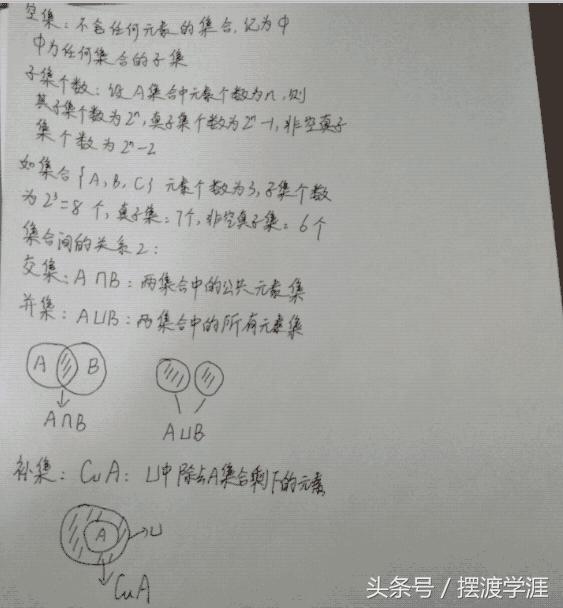 空集：不包任何元素的集合，记为Φ
Φ为任何集合的子集
子集个数：设A集合中元素个数为n，则
其子集个数为2ⁿ，真子集个数为2ⁿ-1，非空真子
集个数为2ⁿ-2
如集合{A,B,C}元素个数为3，子集个数
为2³=8个，真子集：7个，非空真子集：6个
集合间的关系2：
交集：A∩B：两集合中的公共元素集
并集：A∪B：两集合中的所有元素集
A B
A∩B
A∪B
补集：CuA：U中除去A集合剩下的元素
A
U
CuA
头条号 / 摆渡学涯